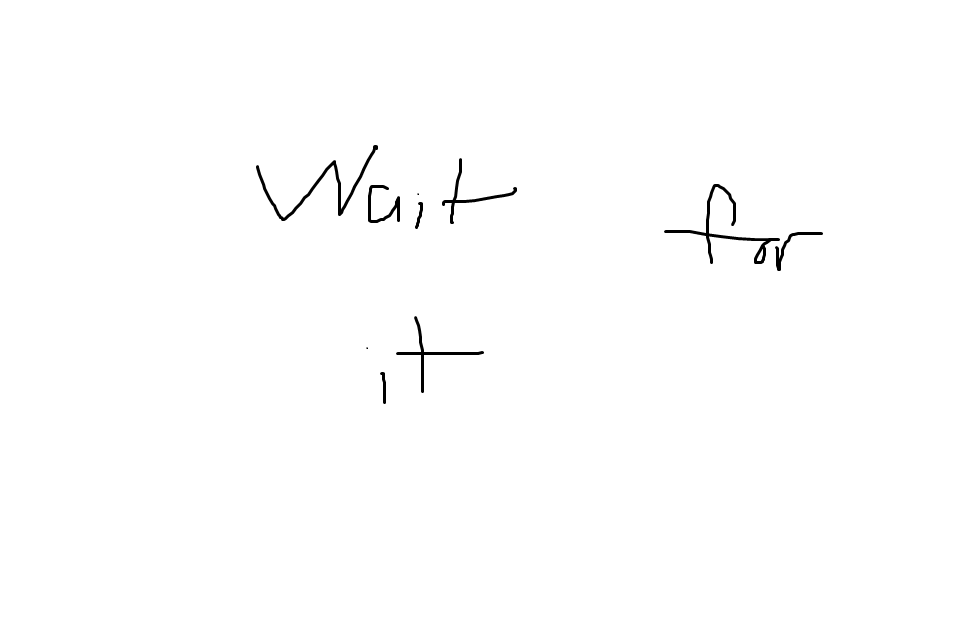 Wait for
it